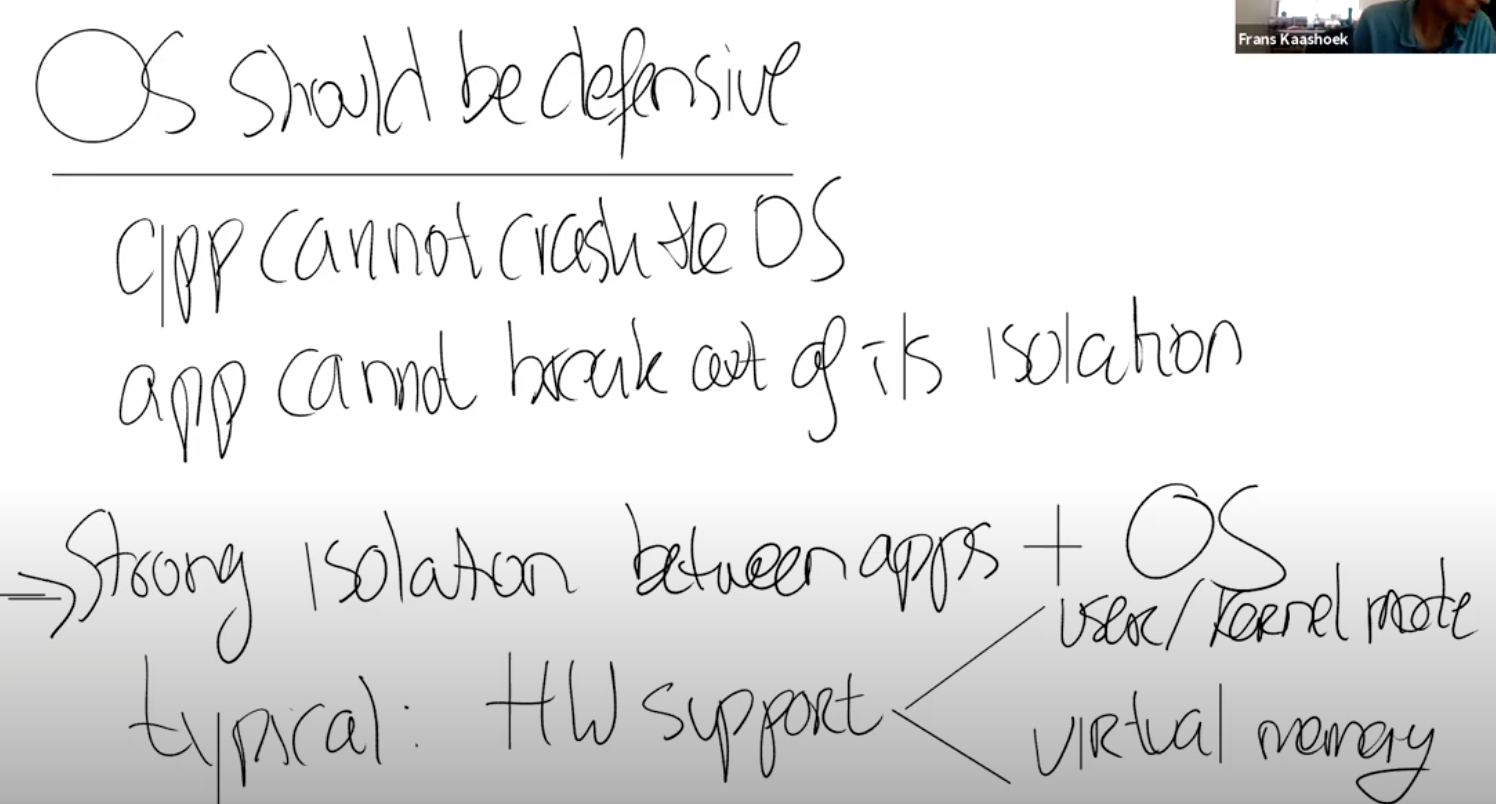 Frans Kaashoek
OS should be defensive
app cannot crash the OS
app cannot break out of its isolation
⇒ Strong isolation between apps + OS
user/kernel mode
typical: HW support
virtual memory